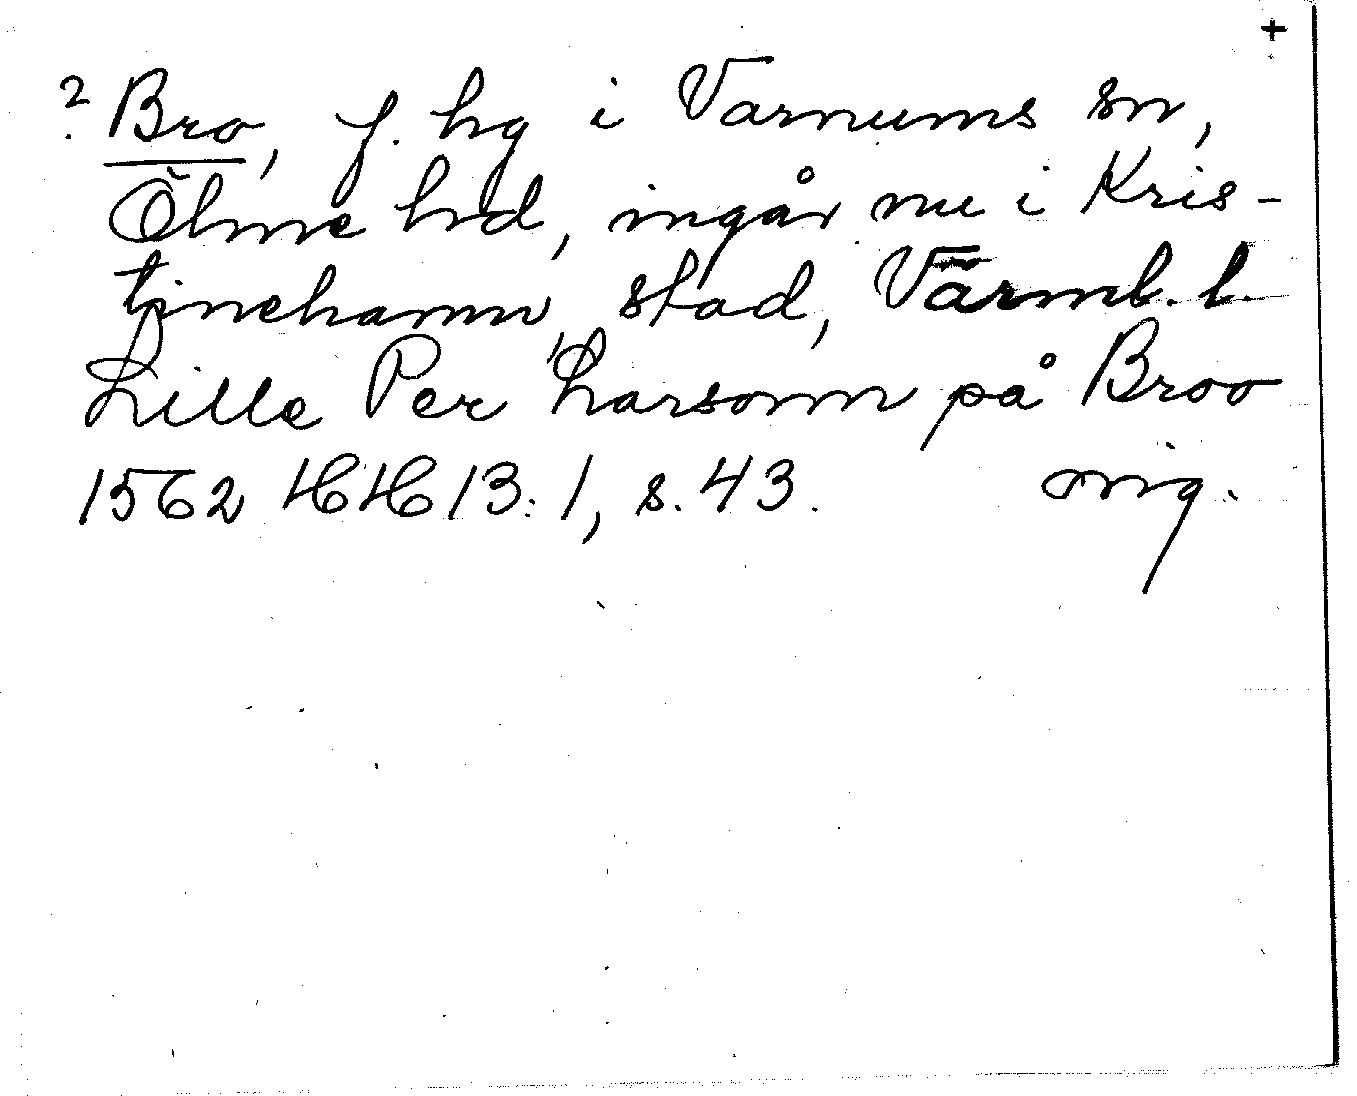 +
? Bro, f. hg i Varnums sn,
Ölme hd, ingår nu i Kris-
tinehamn, stad, Värml. l.
Lille Per Larsonn på Broo
1562 HH 13:1, s. 43. orig.